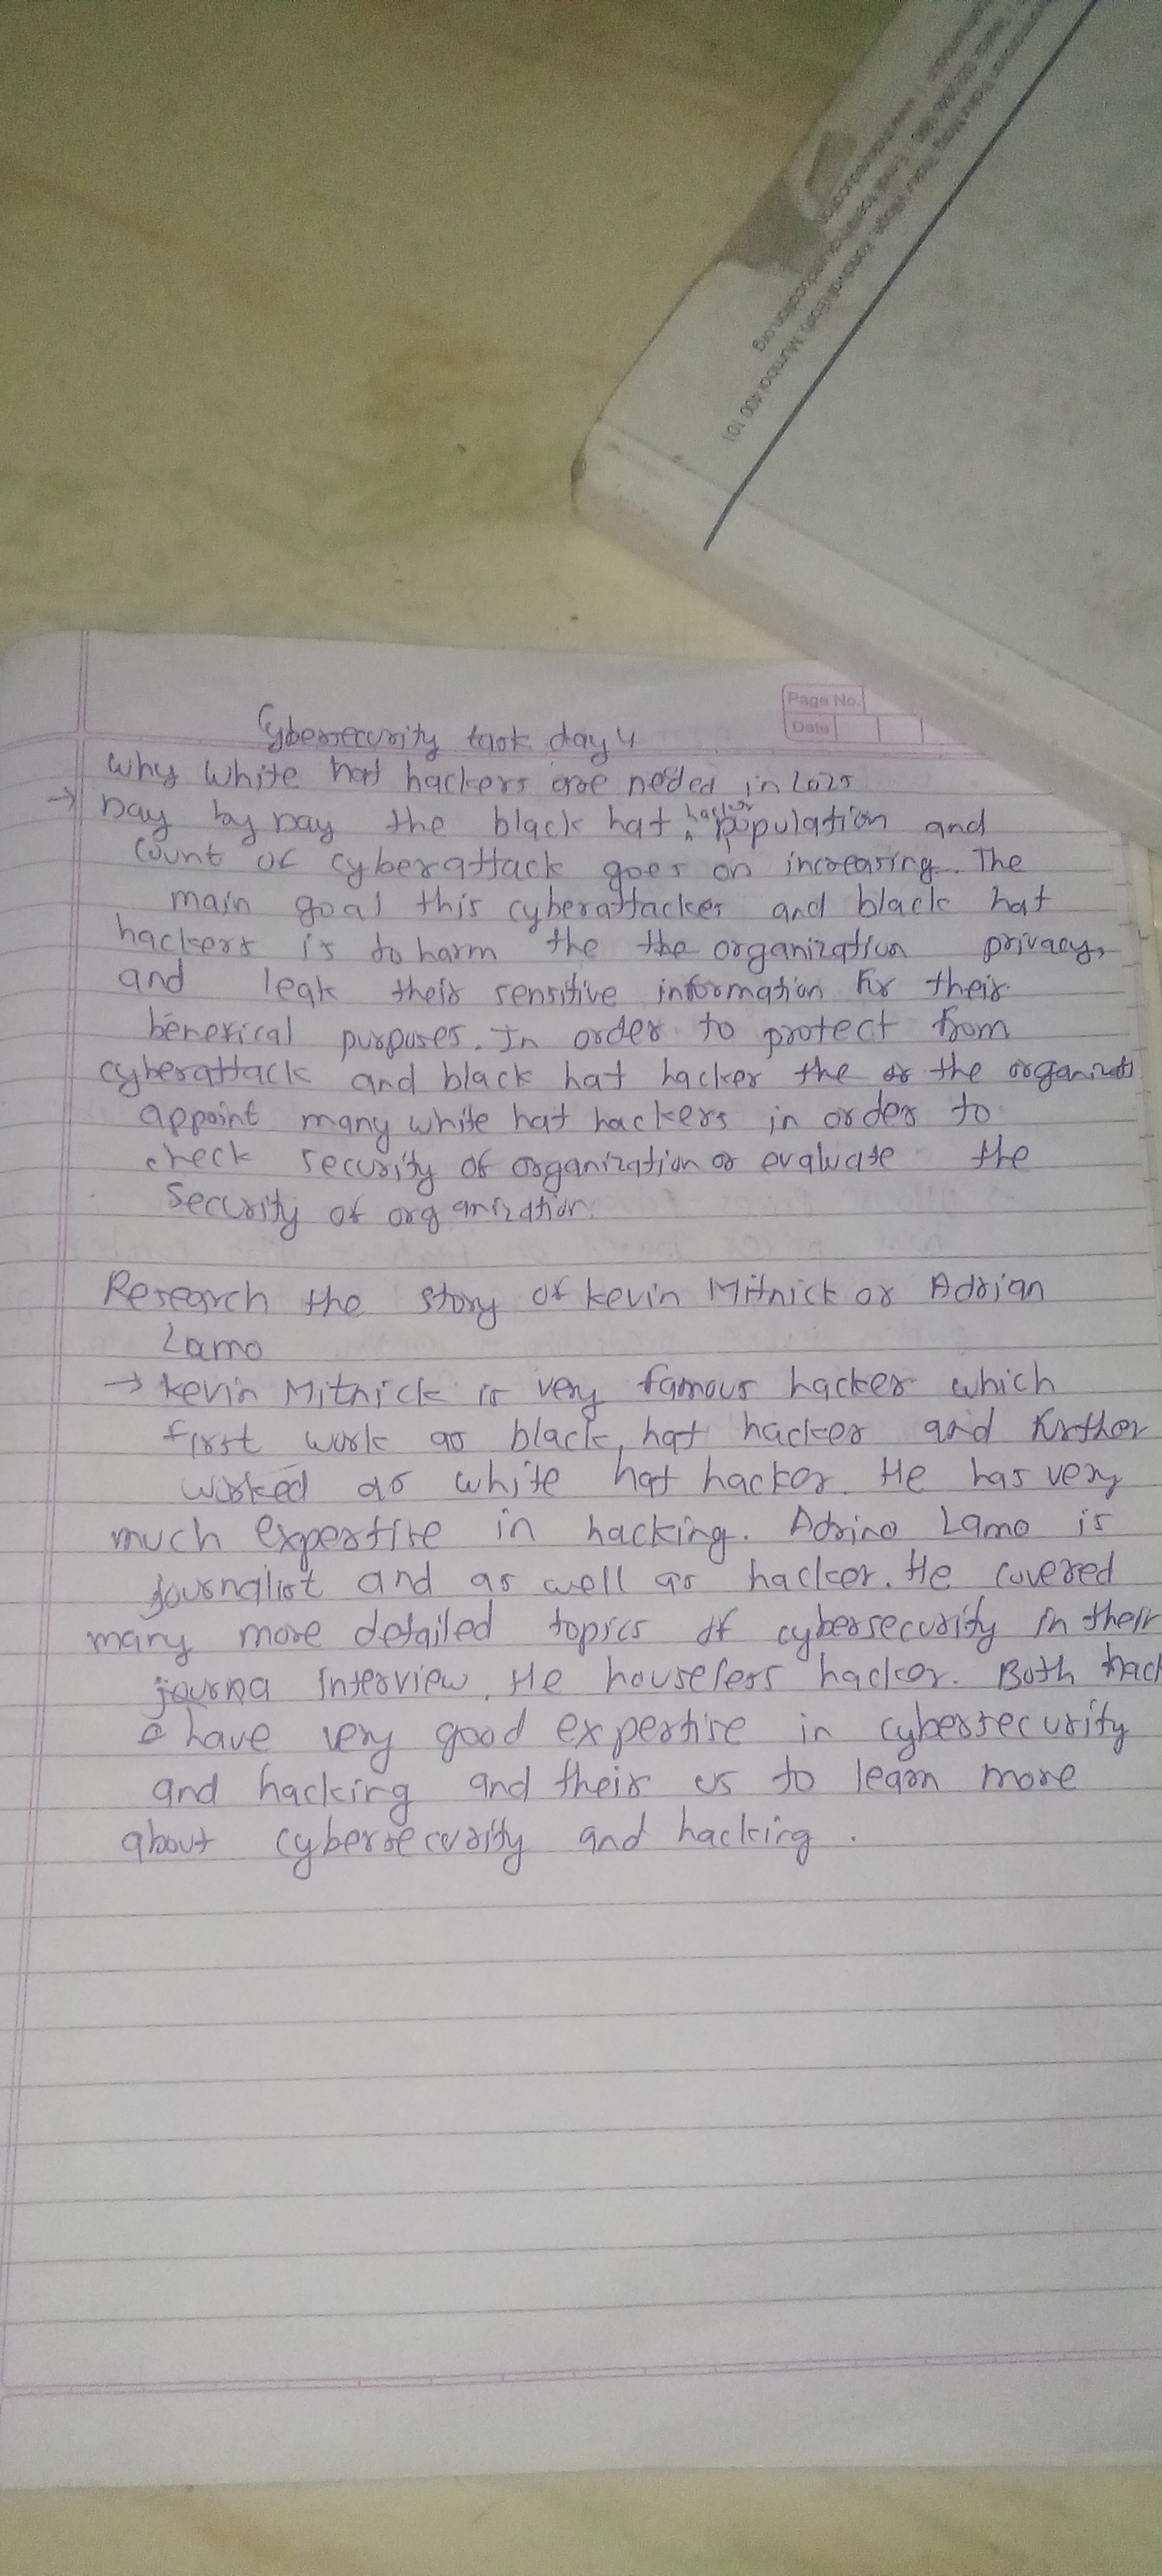 Mumbai 400 101
Page No.
Date
Cybersecurity task day 4
Why White hat hackers are neded in 2025
→ Day by Day the black hat hacker population and
count of cyberattack goes on increasing. The
main goal this cyberattacker and black hat
hackers is to harm the the organization privacy,
and leak their sensitive information for their
benefical purposes. In order to protect from
cyberattack and black hat hacker the or the organizati
appoint many white hat hackers in order to
check security of organization or evaluate the
security of organization.
Research the story of Kevin Mitnick or Adrian
Lamo
→ Kevin Mitnick is very famous hacker which
first work as black hat hacker and further
worked as white hat hacker. He has very
much expertise in hacking. Adrino Lamo is
journalist and as well as hacker. He covered
many more detailed topics of cybersecurity in their
journa interview. He houseless hacker. Both hack
have very good expertise in cybersecurity
and hacking and their us to learn more
about cybersecurity and hacking.